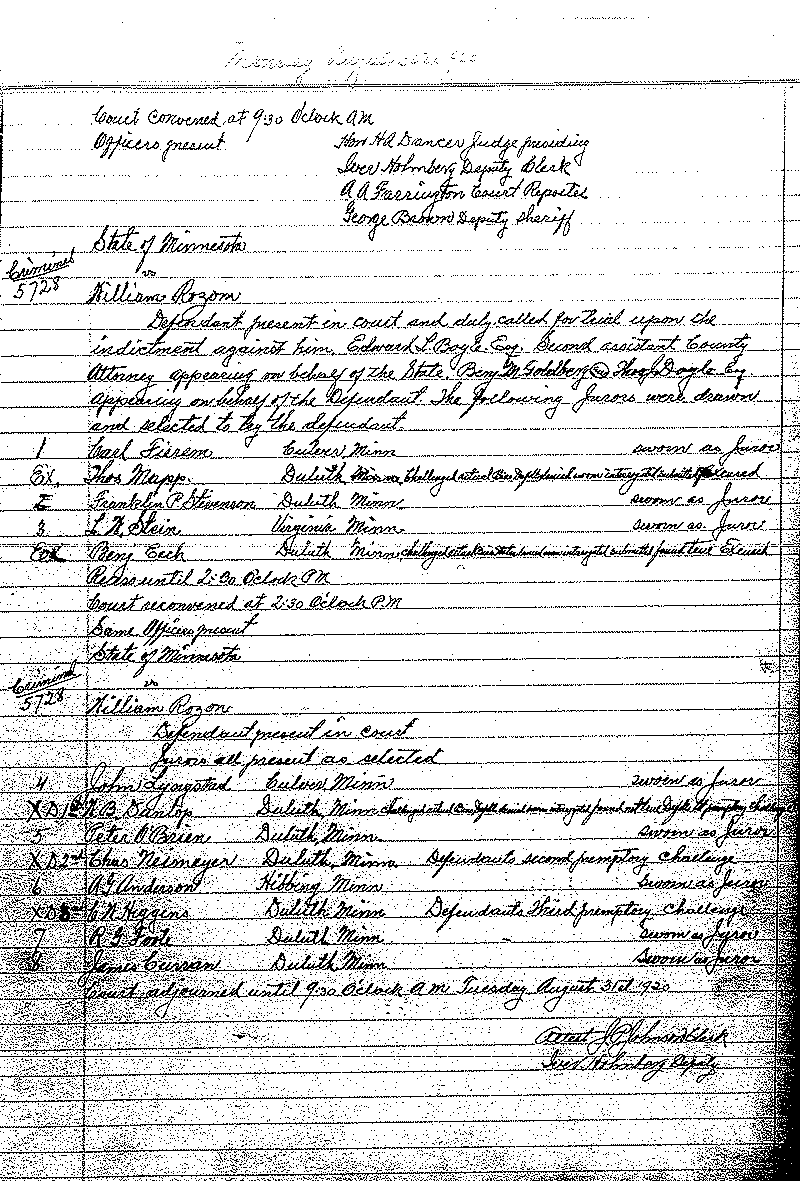 Monday August 30th 920
Court convened at 9:30 O'Clock A.M
Officers present Hon H A Dancer Judge presiding
Iver Holmberg Deputy Clerk
A A Farrington Court Reporter
George Brown Deputy Sheriff
State of Minnesota
Criminal vs
5728 William Rozom
Defendant present in court and duly called for trial upon the
indictment against him. Edward L Boyle Esq. Second assistant County
Attorney appearing on behalf of the State. Benj M Goldberg Thos J Doyle Esq
appearing on behalf of the Defendant. The following Jurors were drawn
and selected to try the defendant
1 Carl Fierem Culver Minn sworn as Juror
Ex. Thos Mapp. Duluth Minn Challenged actual Bias denied sworn submitted Excused
2 Franklin P. Stevenson Duluth Minn sworn as Juror
3 L N Stein Virginia Minn sworn as Juror
Ex Benj Eeck Duluth Minn challenged actual Bias submitted found true Excused
Recess until 2:30 O'Clock P.M
Court reconvened at 2:30 O'Clock P.M
Same Officers present
State of Minnesota
Criminal vs
5728 William Rozon
Defendant present in court
Jurors all present as selected
4 John Culver Minn sworn as Juror
X D 1st N B Dunlop Duluth Minn challenged actual Bias denied sworn found not true Defts 1st premptory challenge
5 Peter O'Brien Duluth, Minn sworn as Juror
X D 2nd Chas Nesmeyer Duluth, Minn Defendants second premptory challenge
6 A G Anderson Hibbing Minn sworn as Juror
X D 3rd C N Higgins Duluth Minn Defendants Third premptory challenge
7 R G Foote Duluth Minn sworn as Juror
8 James Curran Duluth Minn sworn as Juror
Court adjourned until 9:30 O'Clock A M Tuesday August 31st 920
Attest J P Johnson Clerk
Iver Holmberg Deputy